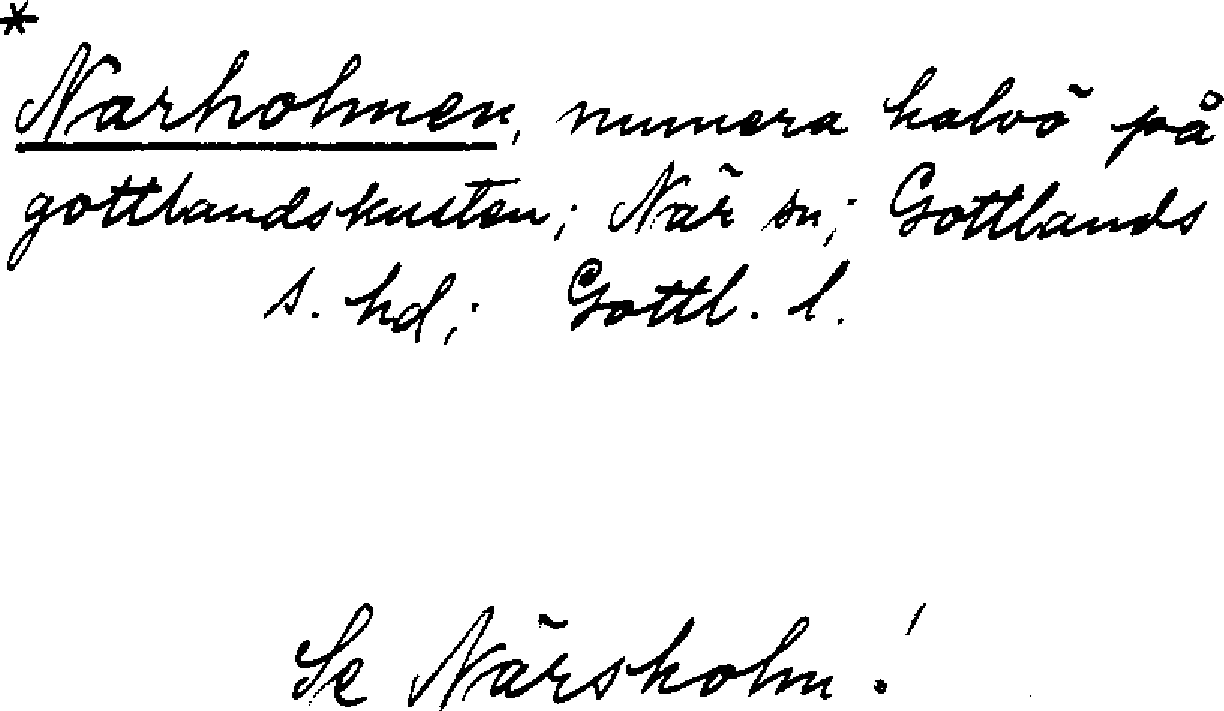 *
Narholmen, numera halvö på
gottlandskusten; När sn; Gottlands
s. hd; Gottl. l.
Se Närsholm!